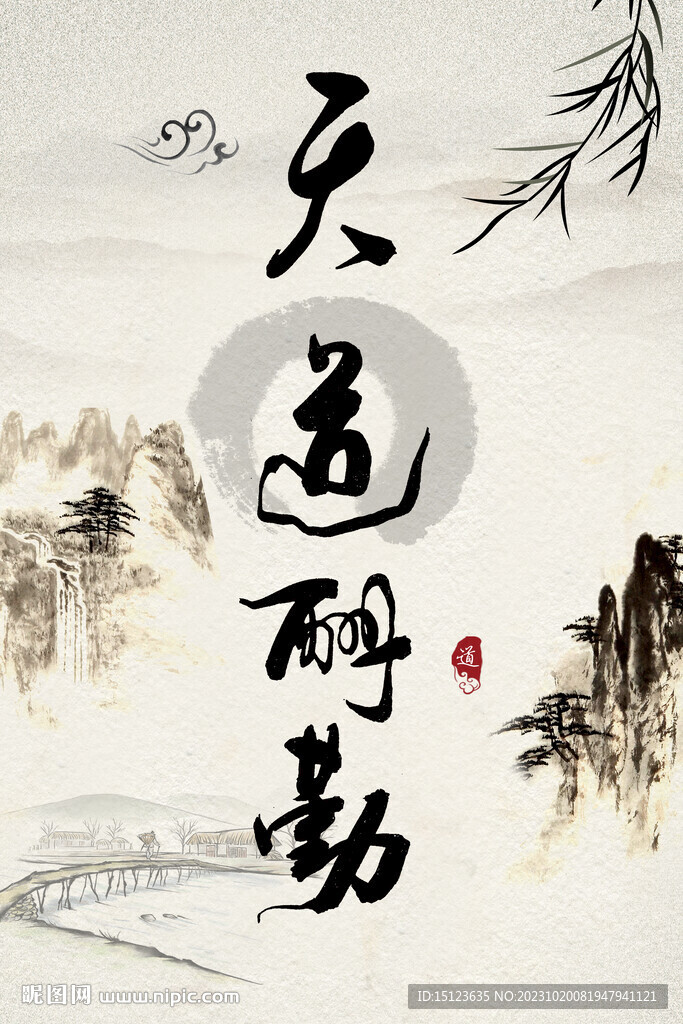 天道酬勤
道
昵图网 www.nipic.com
ID:15123635 NO:20231020081947941121